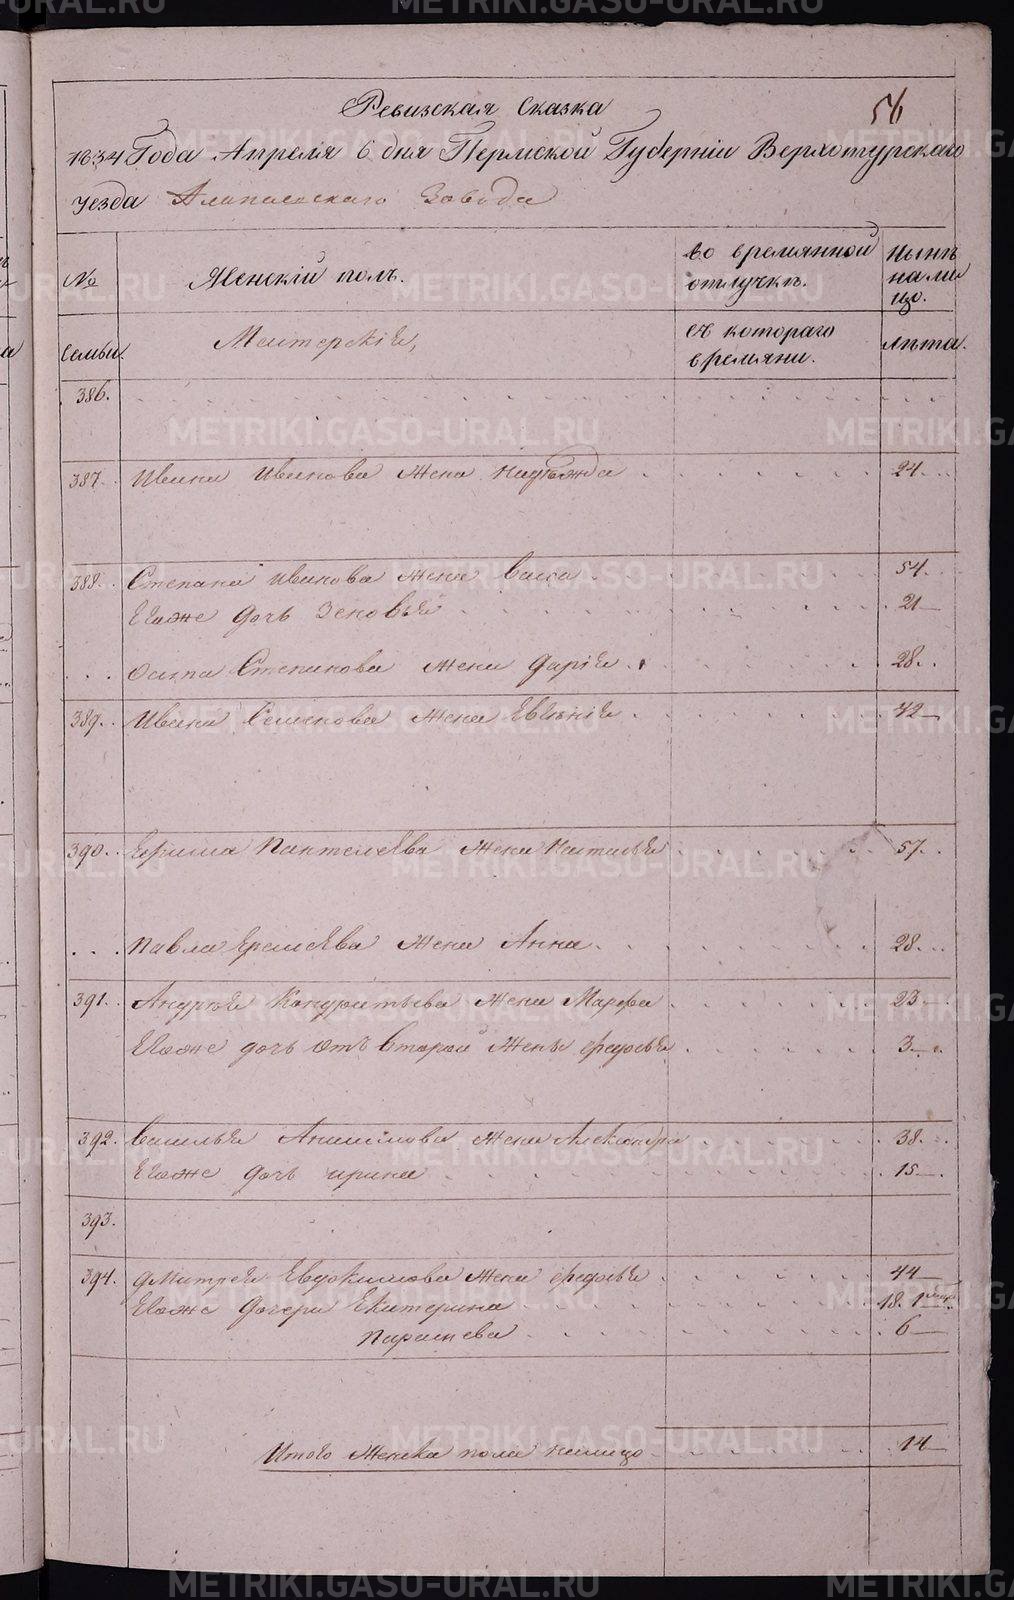 Ревизская Сказка
56
1834 Года Апреля 6 дня Пермской Губерніи Верхотурскаго
уезда Алапаевскаго Завода
№ Женскій полъ. во времянной отлучкѣ. Нынѣ на лицо.
Семьи Мастерскіе, съ котораго времяни. лѣта.
386.
387. Ивана Иванова жена Надѣжда 24
388. Степана Иванова жена Васса 54
Егоже дочь Зеновья 21
Осипа Степанова жена Дарія 28
389. Ивана Семенова жена Евгенія 42
390. Ерема Пантелѣева жена Наталья 57
Павла Еремѣева жена Анна 28
391. Андрѣя Кондратьева жена Марфа 23
Егоже дочь отъ второй жены Федосья 3
392. Василья Анисимова жена Александра 38
Егоже дочь Ирина 15
393.
394. Дмитрея Евдокимова жена Федосья 44
Егоже дочери Екатерина 18. 1 мѣс.
Парасковья 6
Итого женска пола налицо 14
METRIKI.GASO-URAL.RU